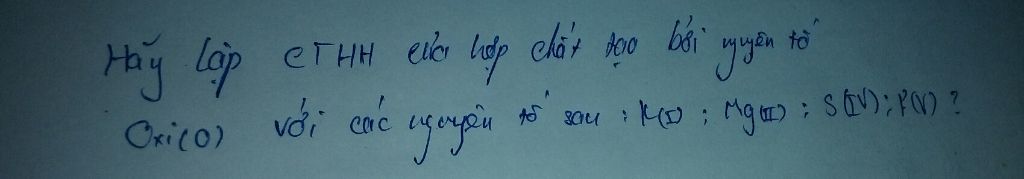 Hãy lập CTHH của hợp chất tạo bởi nguyên tố
Oxi(O) với các nguyên tố sau : K(I) ; Mg(II) ; S(IV) ; P(V) ?